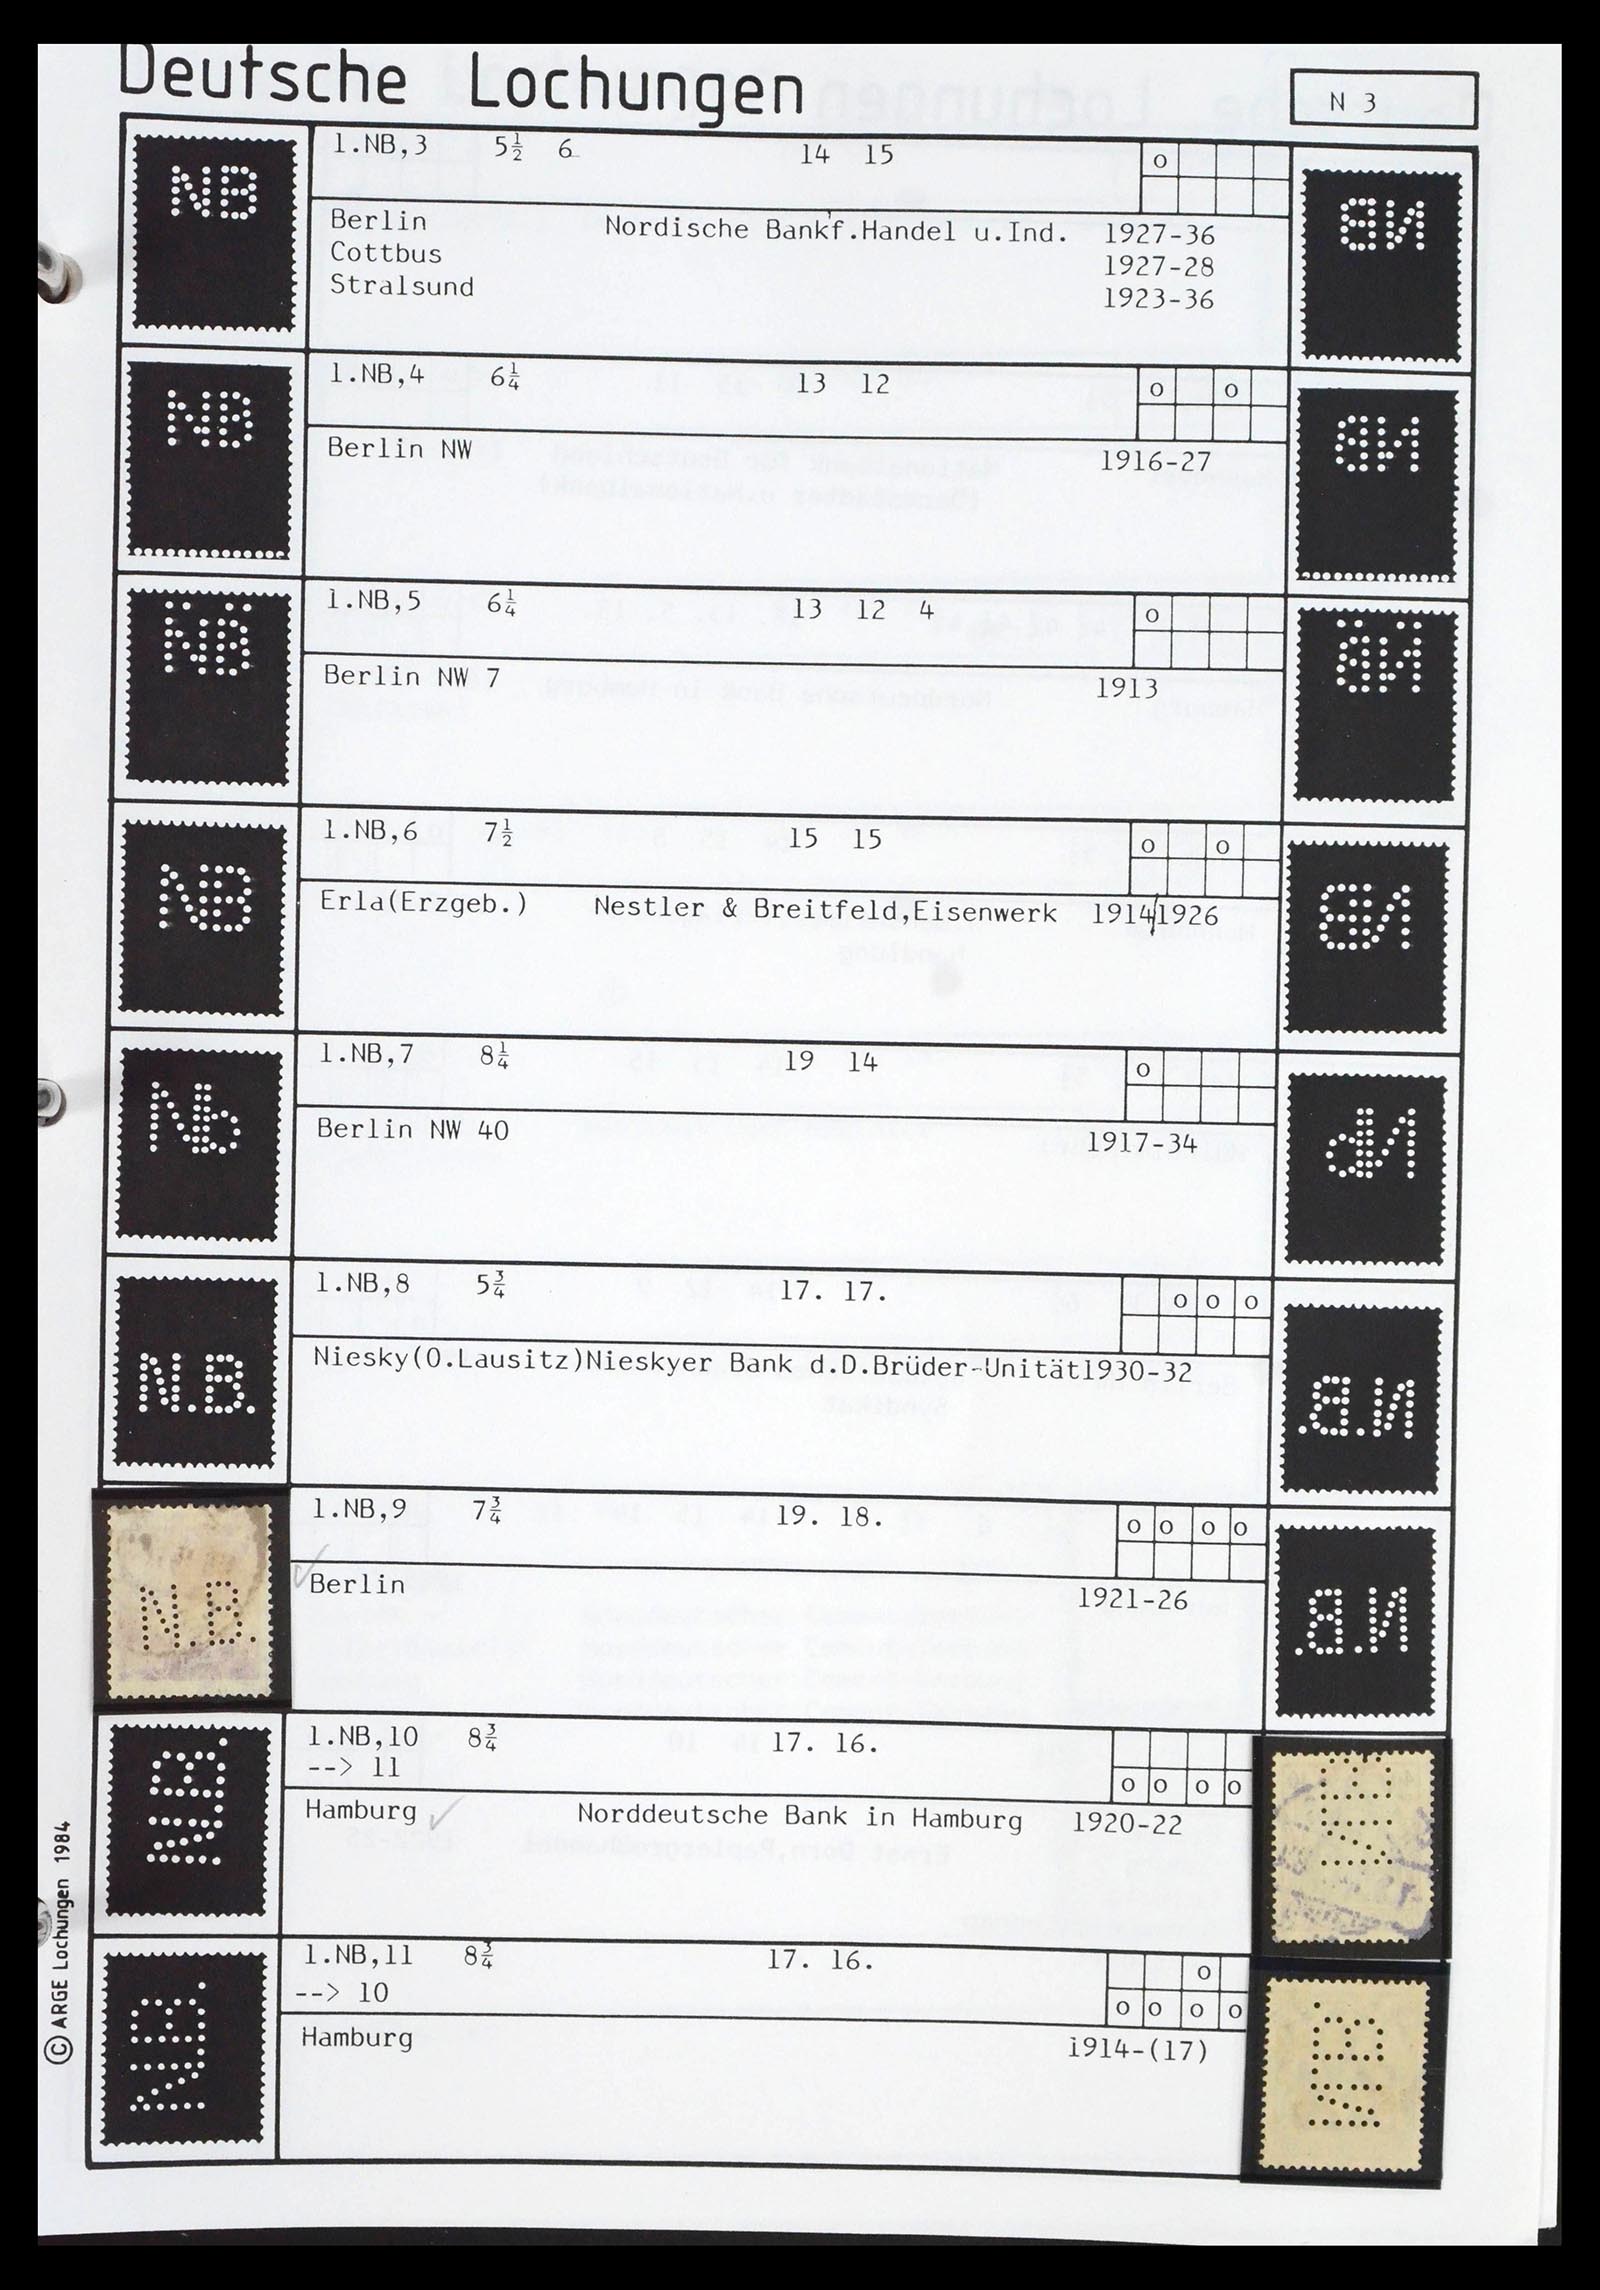 Deutsche Lochungen
N 3
NB
1.NB,3 5½ 6 14 15
o
NB
Berlin Nordische Bankf.Handel u.Ind. 1927-36
Cottbus 1927-28
Stralsund 1923-36
NB
1.NB,4 6¼ 13 12
o o
NB
Berlin NW 1916-27
NB
1.NB,5 6¼ 13 12 4
o
NB
Berlin NW 7 1913
NB
1.NB,6 7½ 15 15
o o
NB
Erla(Erzgeb.) Nestler & Breitfeld,Eisenwerk 1914/1926
Nb
1.NB,7 8¼ 19 14
o
Nb
Berlin NW 40 1917-34
N.B.
1.NB,8 5¾ 17. 17.
o o o
N.B.
Niesky(O.Lausitz)Nieskyer Bank d.D.Brüder-Unität1930-32
N.B.
1.NB,9 7¾ 19. 18.
o o o o
N.B.
✓
Berlin 1921-26
N.B.
1.NB,10 8¾ 17. 16.
--> 11
o o o o
N.B.
Hamburg ✓ Norddeutsche Bank in Hamburg 1920-22
N.B.
1.NB,11 8¾ 17. 16.
o
--> 10
o o o o
N.B.
Hamburg 1914-(17)
© ARGE Lochungen 1984